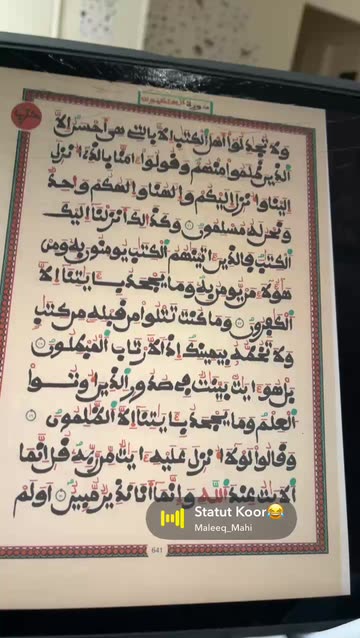 سورة العنكبوت
ولا تجدلوا أهل الكتب إلا بالتي هي أحسن إلا
الذين ظلموا منهم وقولوا ءامنا بالذي أنزل
إلينا وأنزل إليكم وإلهنا وإلهكم وحد
ونحن له مسلمون وكذلك أنزلنا إليك
الكتب فالذين ءاتينهم الكتب يومنون به ومن
هؤلاء من يومن به وما يجحد بءايتنا إلا
الكفرون وما كنت تتلوا من قبله من كتب
ولا تخطه بيمينك إذا لارتاب المبطلون
بل هو ءايت بينت في صدور الذين أوتوا
العلم وما يجحد بءايتنا إلا الظلمون
وقالوا لولا أنزل عليه ءايت من ربه قل إنما
الايت عند الله وإنما أنا نذير مبين أولم
Statut Koor😂
Maleeq_Mahi
641